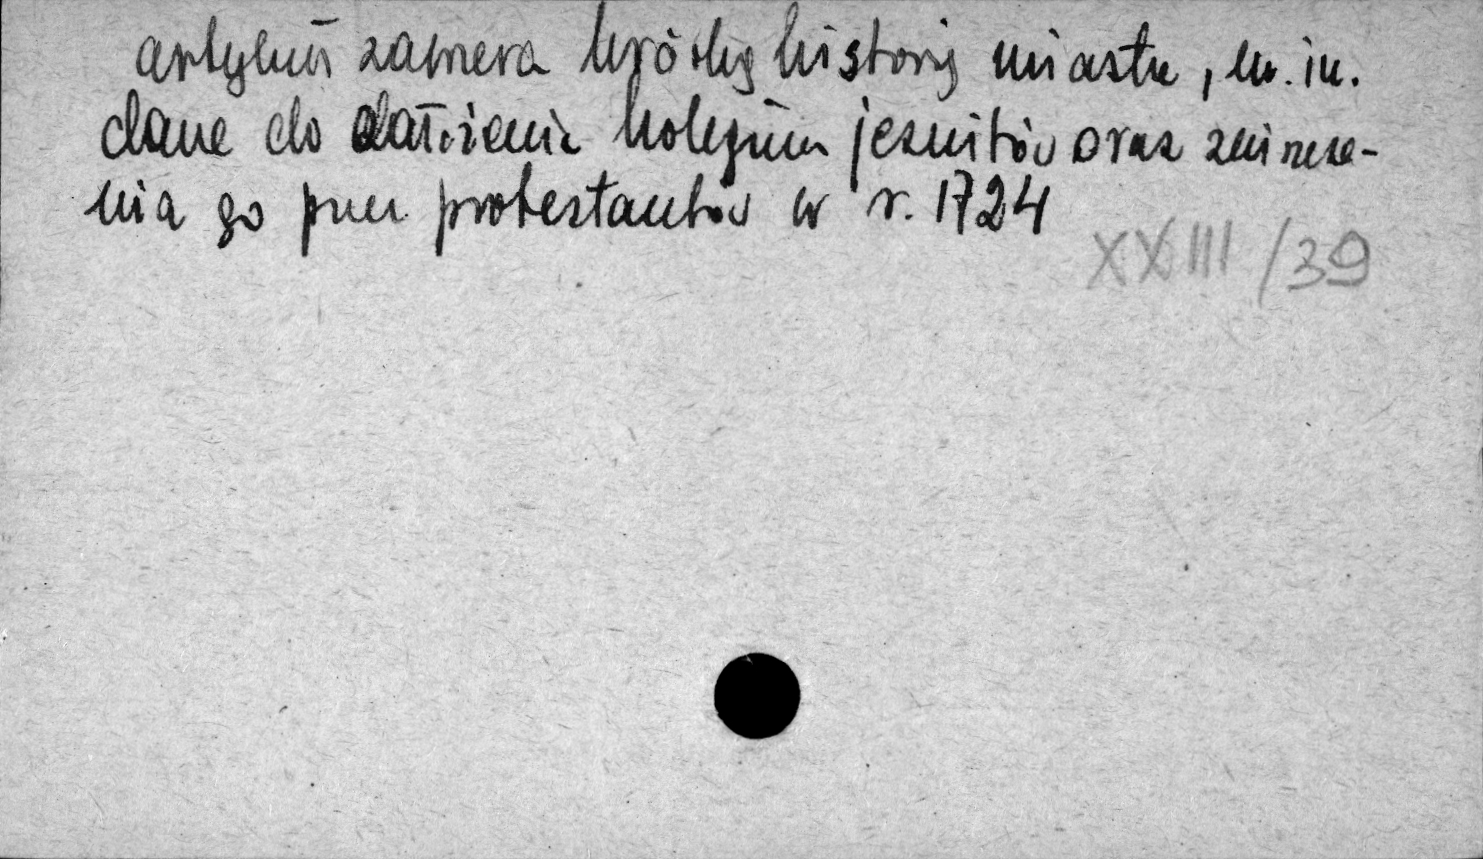 artykuł zawiera krótką historię miasta, m. in.
dane do założenia kolegium jezuitów oraz zniszcze-
nia go przez protestantów w r. 1724
XXIII/39